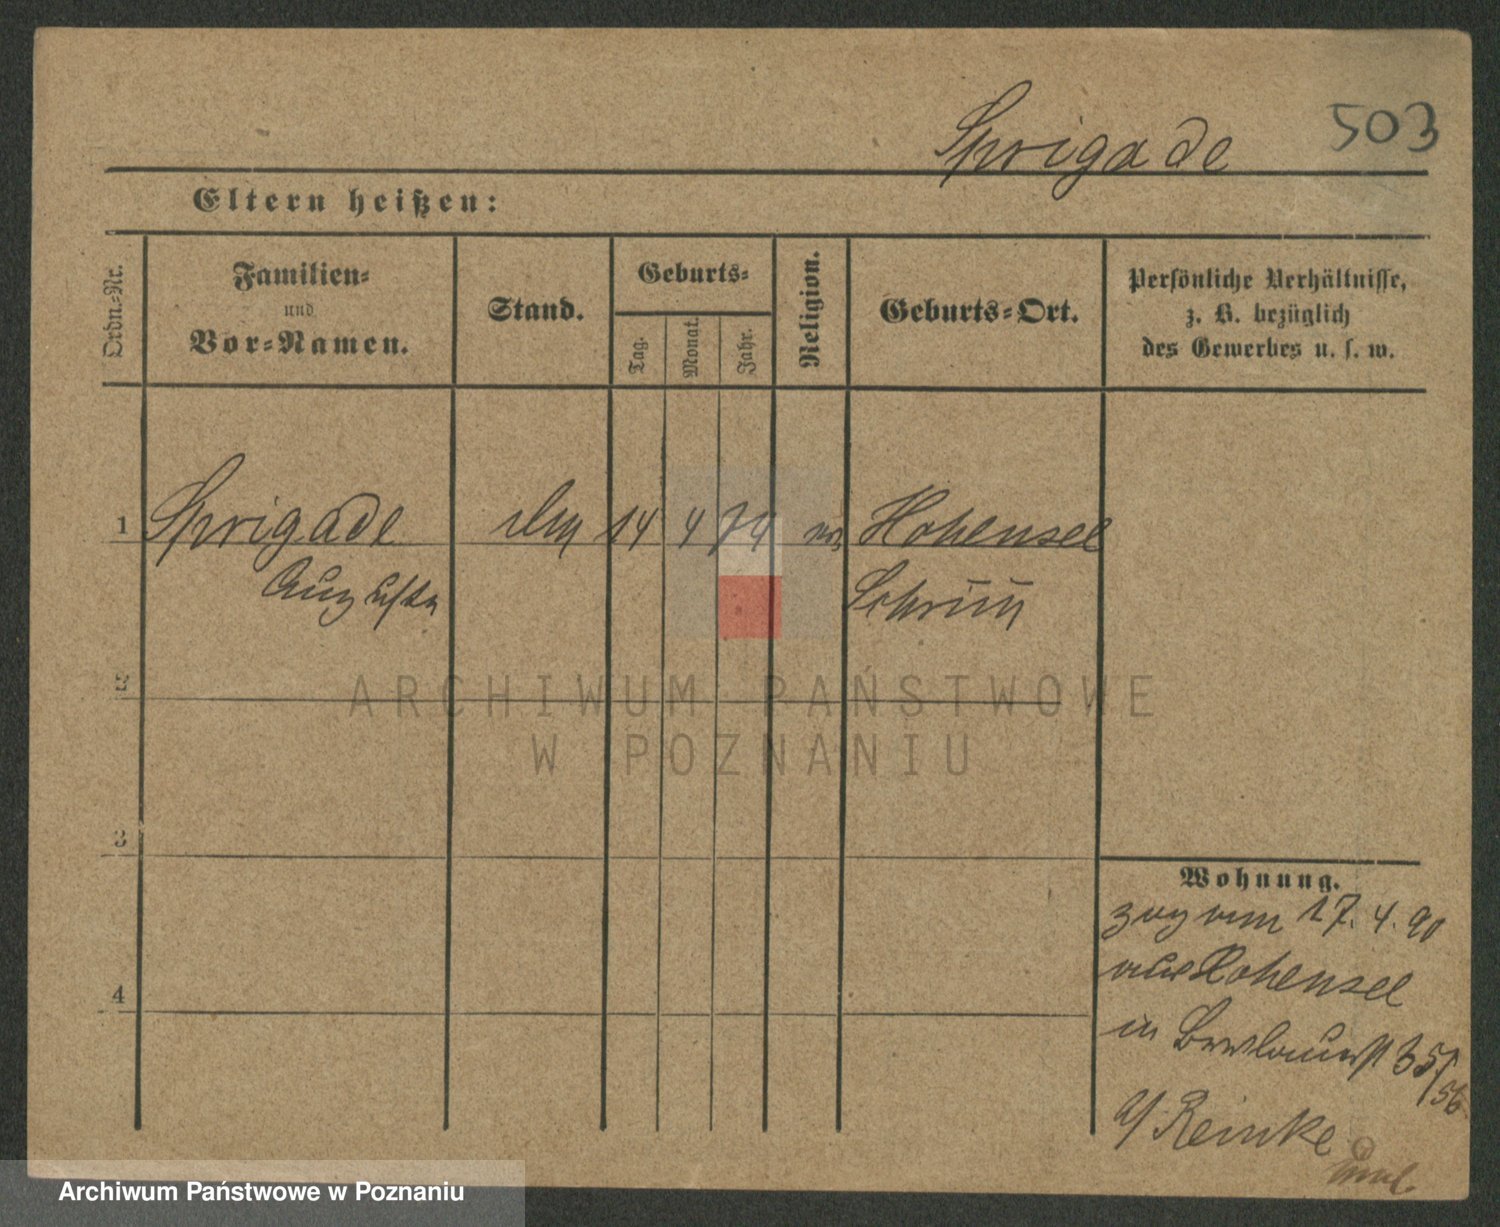 Sprigade 503
Eltern heißen:
Ordn.-Nr.
Familien-
und
Vor-Namen.
Stand.
Geburts-
Tag.
Monat.
Jahr.
Religion.
Geburts-Ort.
Persönliche Verhältnisse,
z. B. bezüglich
des Gewerbes u. s. w.
1 Sprigade 14 4 74 Hohensee
Auguste Schrim
2
ARCHIWUM PAŃSTWOWE
W POZNANIU
3
4
Wohnung.
zog am 17. 4. 90
aus Hohensee
in 35/56
b/ Reinke
Archiwum Państwowe w Poznaniu